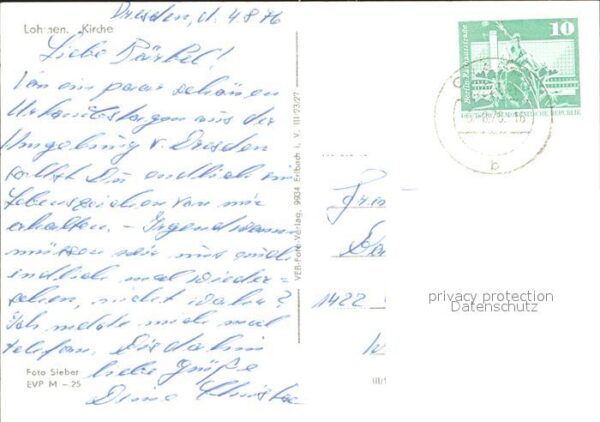 Dresden, d. 4.8.76
Lohmen. Kirche
Liebe Bärbel!
Von ein paar schönen
Urlaubstagen aus der
Umgebung v. Dresden
sollst Du endlich ein
Lebenszeichen von mir
erhalten. – Irgendwann
müssen wir uns auch
endlich mal wieder-
sehen, nicht wahr?
Ich melde mich mal
telefon. Bis dahin
liebe Grüße
Deine
Foto Sieber
EVP M – 25
VEB-Foto-Verlag, 9934 Erlbach i. V. III-23-27
10
Berlin, Rathausstraße
DEUTSCHE DEMOKRATISCHE REPUBLIK
b
1422
privacy protection
Datenschutz